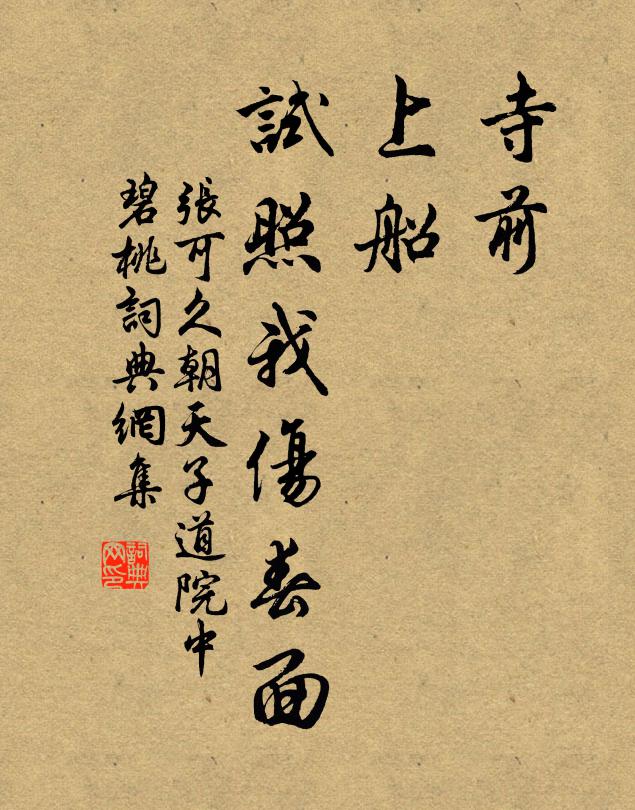 寺前
上船
試照我傷春面
張可久朝天子道院中
碧桃詞典網集
詞典网印